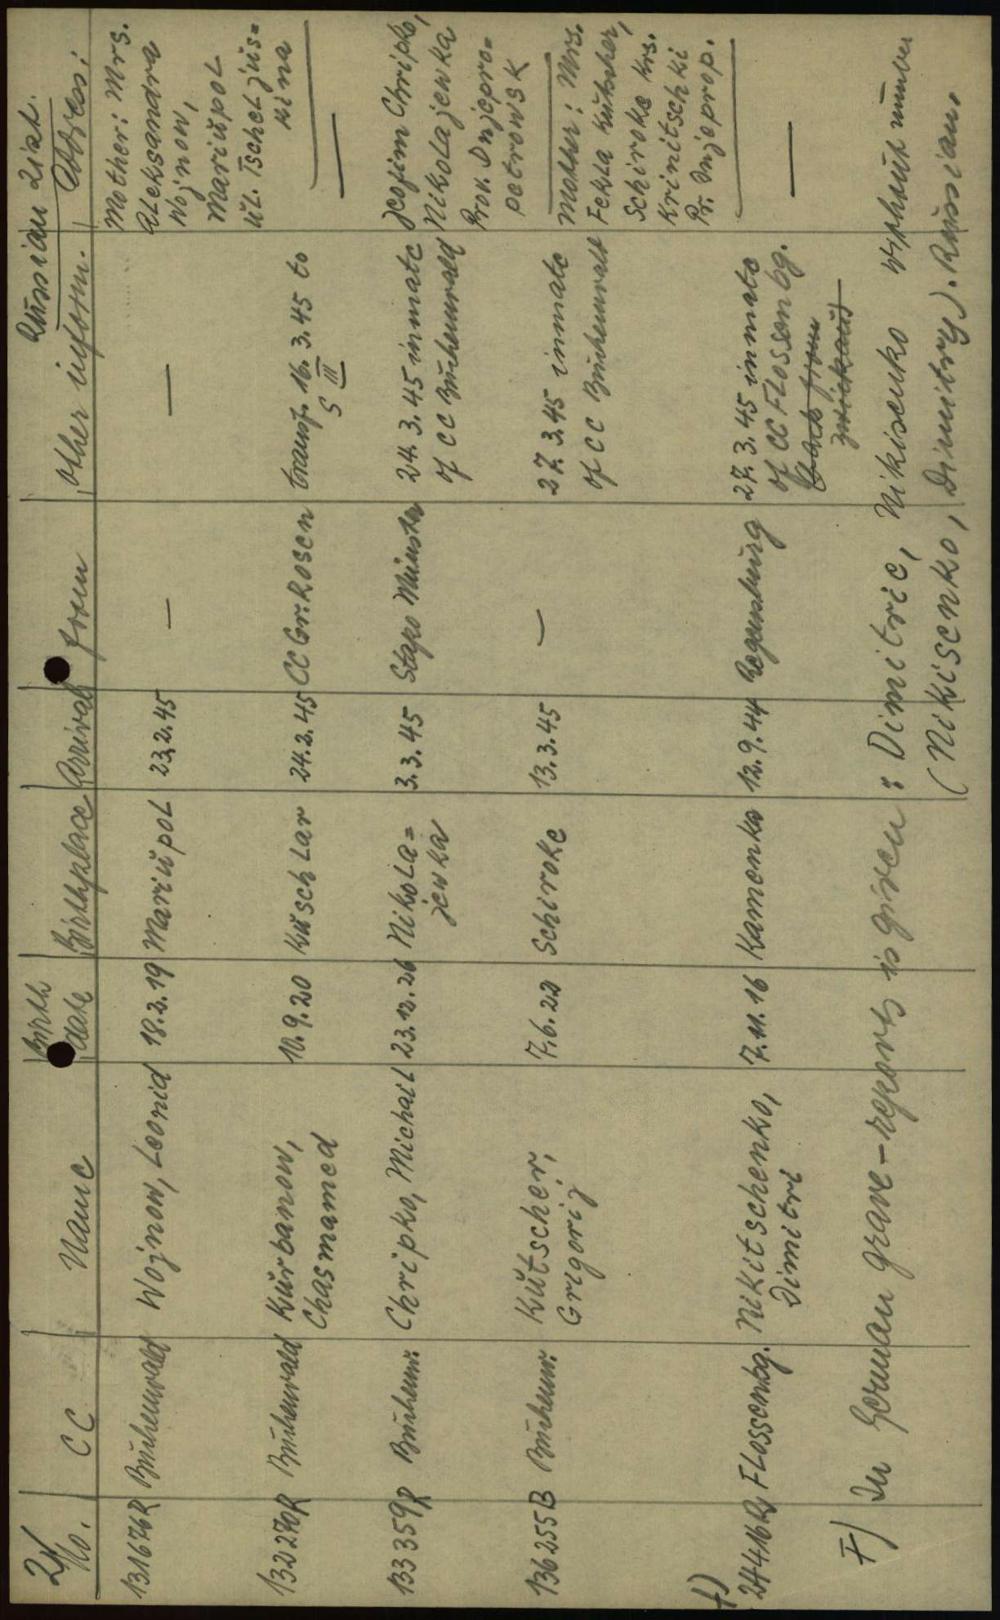 2/
Russian List.
No. CC Name Birth date Birthplace Arrival from other inform. Address:
131676R Buchenwald Wojnow, Leonid 18.2.19 Mariupol 23.2.45 — — Mother: Mrs.
Aleksandra
Wojnow,
Mariupol
ul. Tscheljus=
kina
132270R Buchenwald Kurbanow, 10.9.20 Kuschlar 24.2.45 CC Gr. Rosen transf. 16.3.45 to —
Chasmamed S III
133359R Buchenw. Chripko, Michail 23.12.26 Nikola= 3.3.45 Stapo Münster 24.3.45 inmate Jefim Chripko,
jewka of CC Buchenwald Nikolajewka
Prov. Dnjepro=
petrowsk
136255B Buchenw. Kutscher, 7.6.22 Schiroke 13.3.45 — 27.3.45 inmate Mother: Mrs.
Grigorij of CC Buchenwald Fekla Kutscher,
Schiroke Krs.
Krinitschki
Pr. Dnjeprop.
+)
24416R Flossenbg. Nikitschenko, 7.11.16 Kamenka 12.9.44 Regensburg 27.3.45 inmate —
Dimitri of CC Flossenbg.
back from
Zwickau
+) In German grave-reports is given: Dimitric, Nikisenko without number
(Nikisenko, Dimitry). Russian.